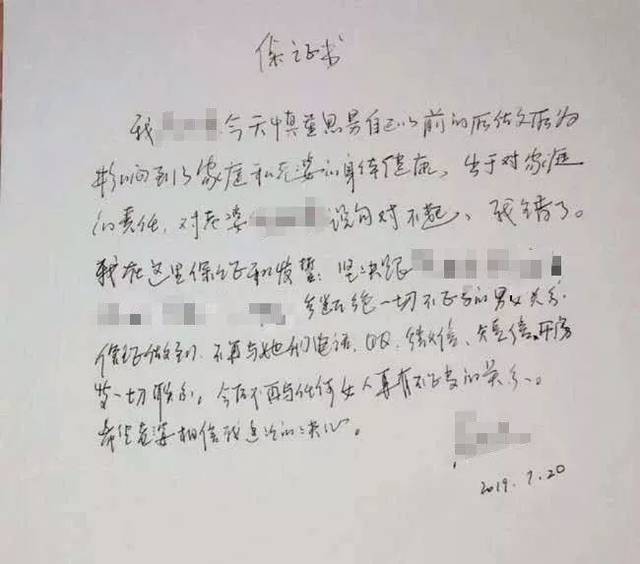 保证书
我 今天慎重思量自己以前的所做所为
影响到了家庭和老婆的身体健康，出于对家庭
的责任，对老婆 说句对不起，我错了。
我在这里保证和发誓：坚决跟
断绝一切不正当的男女关系
保证做到，不再与她们电话、QQ、微信、短信、开房
等一切联系，今后不再与任何女人再有不正当的关系。
希望老婆相信我这次的决心。
2019.7.20